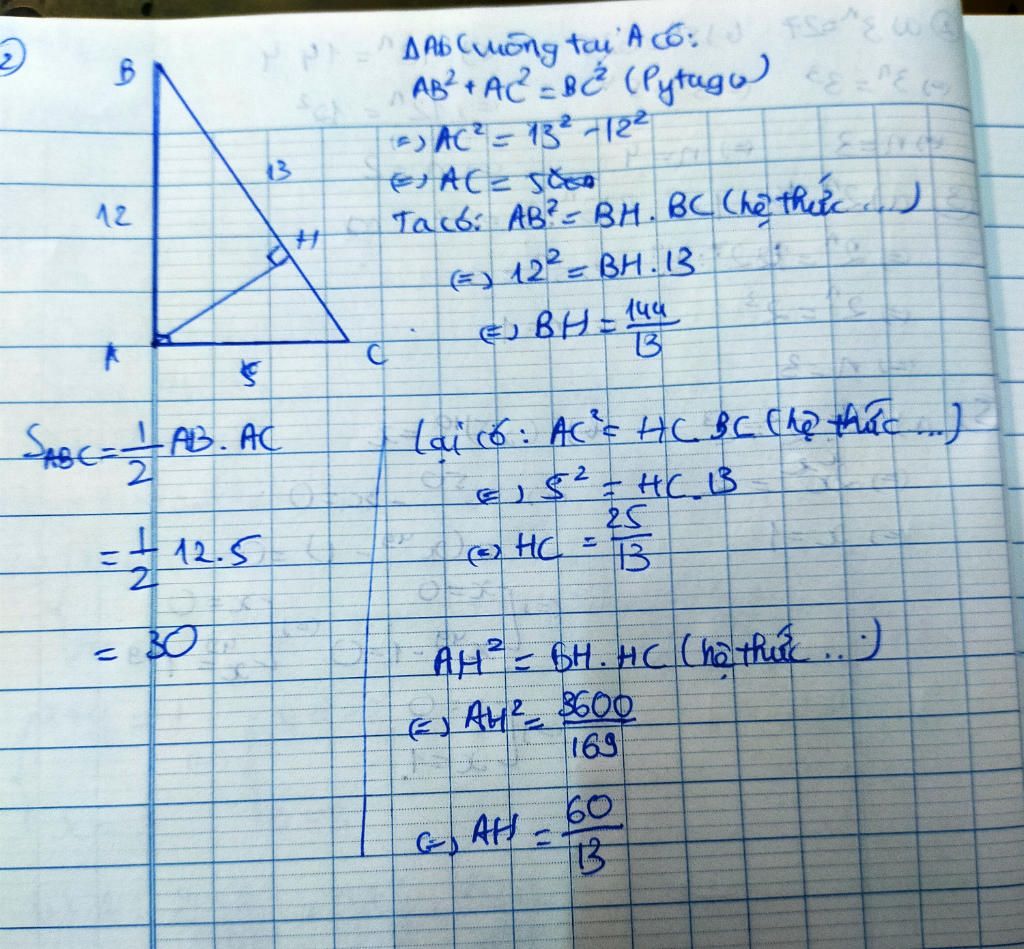 2
B
13
12
H
A
5
C
ΔABC vuông tại A có:
AB² + AC² = BC² (Pytago)
⇔ AC² = 13² - 12²
⇔ AC = 5
Ta có: AB² = BH . BC (hệ thức ...)
⇔ 12² = BH . 13
⇔ BH = 144/13
S_ABC = 1/2 AB . AC
= 1/2 12.5
= 30
Lại có: AC² = HC . BC (hệ thức ...)
⇔ 5² = HC . 13
⇔ HC = 25/13
AH² = BH . HC (hệ thức ...)
⇔ AH² = 3600/169
⇔ AH = 60/13